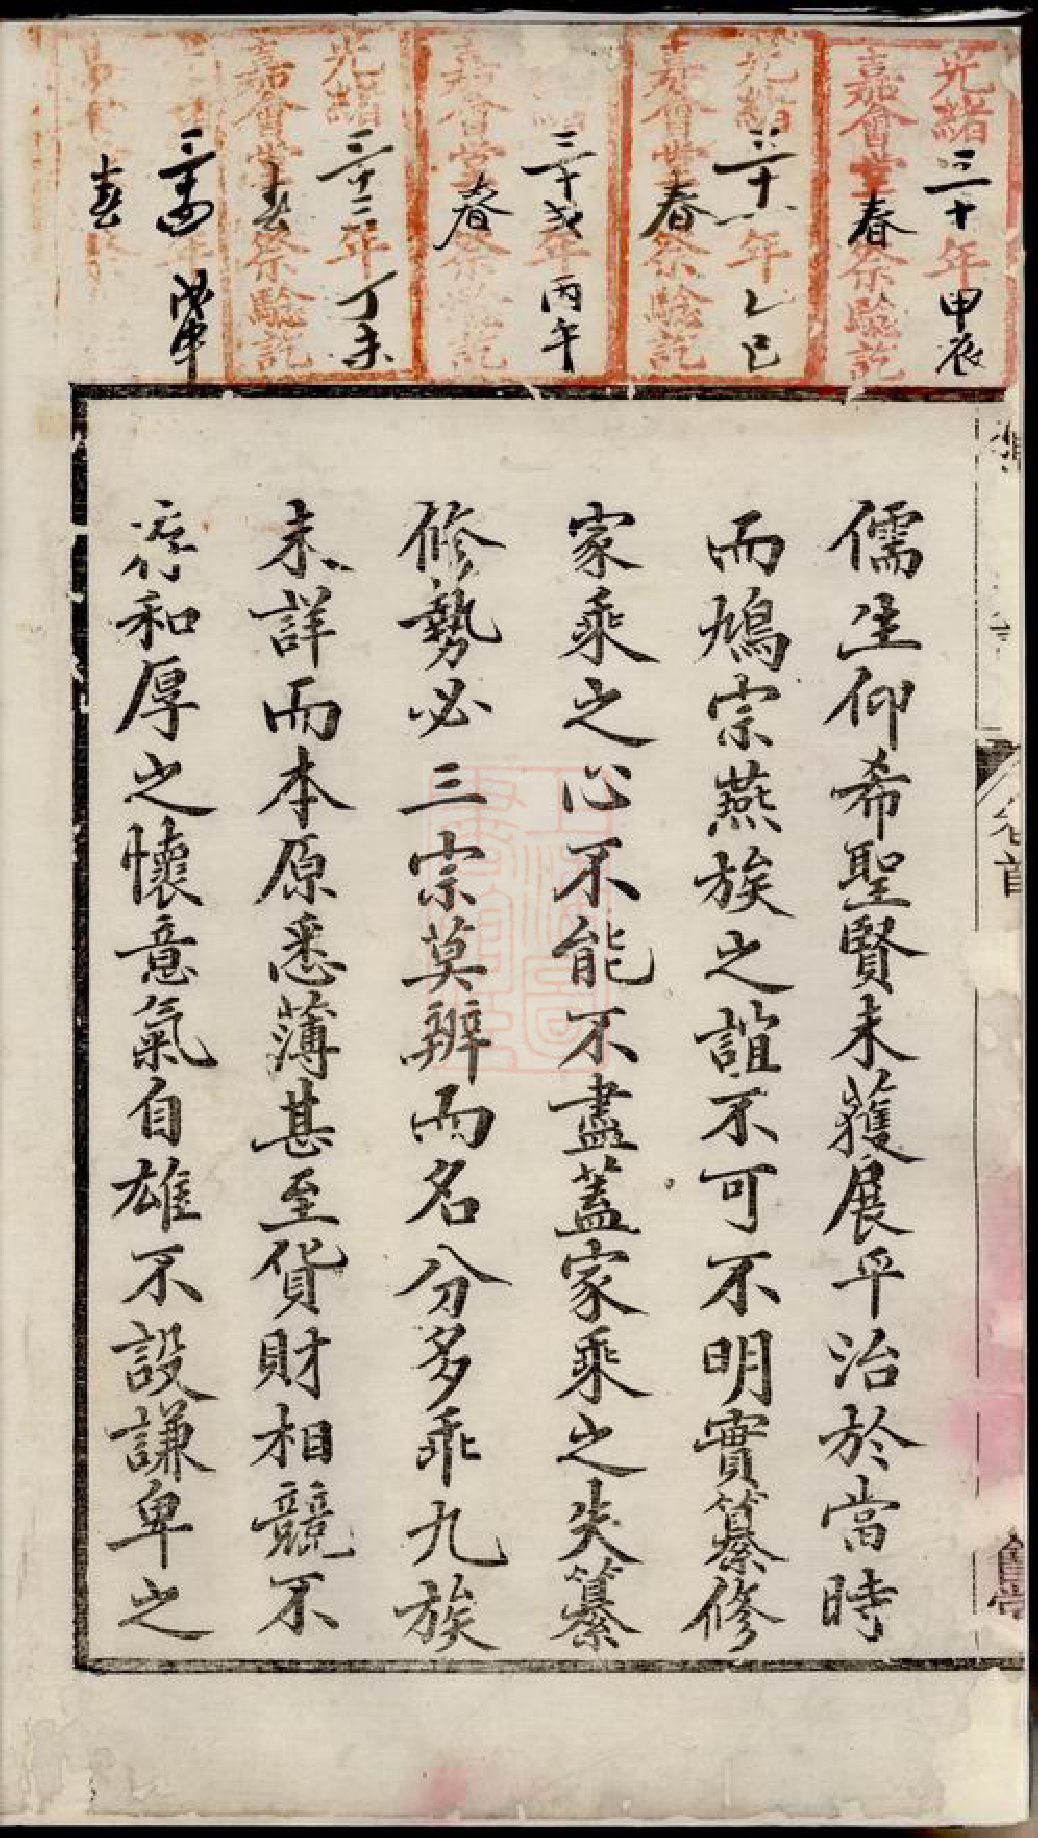 光緒三十年甲辰
嘉會堂春祭驗訖
光緒三十一年乙巳
嘉會堂春祭驗訖
三十二年丙午
嘉會堂春祭驗訖
光緒三十三年丁未
嘉會堂春祭驗訖
三十四年戊申
春
卷首
會堂
儒生仰希聖賢未獲展平治於當時
而鳩宗燕族之誼不可不明實纂修
家乘之心不能不盡蓋家乘之失纂
修勢必三宗莫辨而名分多乖九族
未詳而本原悉薄甚至貨財相競不
存和厚之懷意氣自雄不設謙卑之